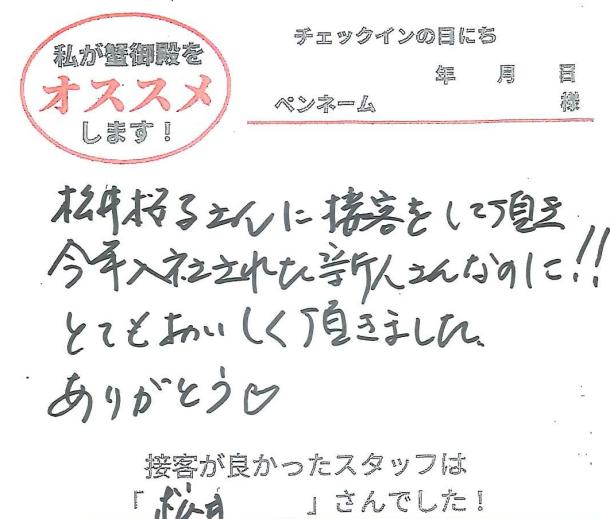 私が蟹御殿を
オススメ
します！
チェックインの日にち
年 月 日
ペンネーム 様
松井 さんに接客をして頂き
今年入社された新人さんなのに!!
とてもおいしく頂きました。
ありがとう♡
接客が良かったスタッフは
「 松井 」さんでした！